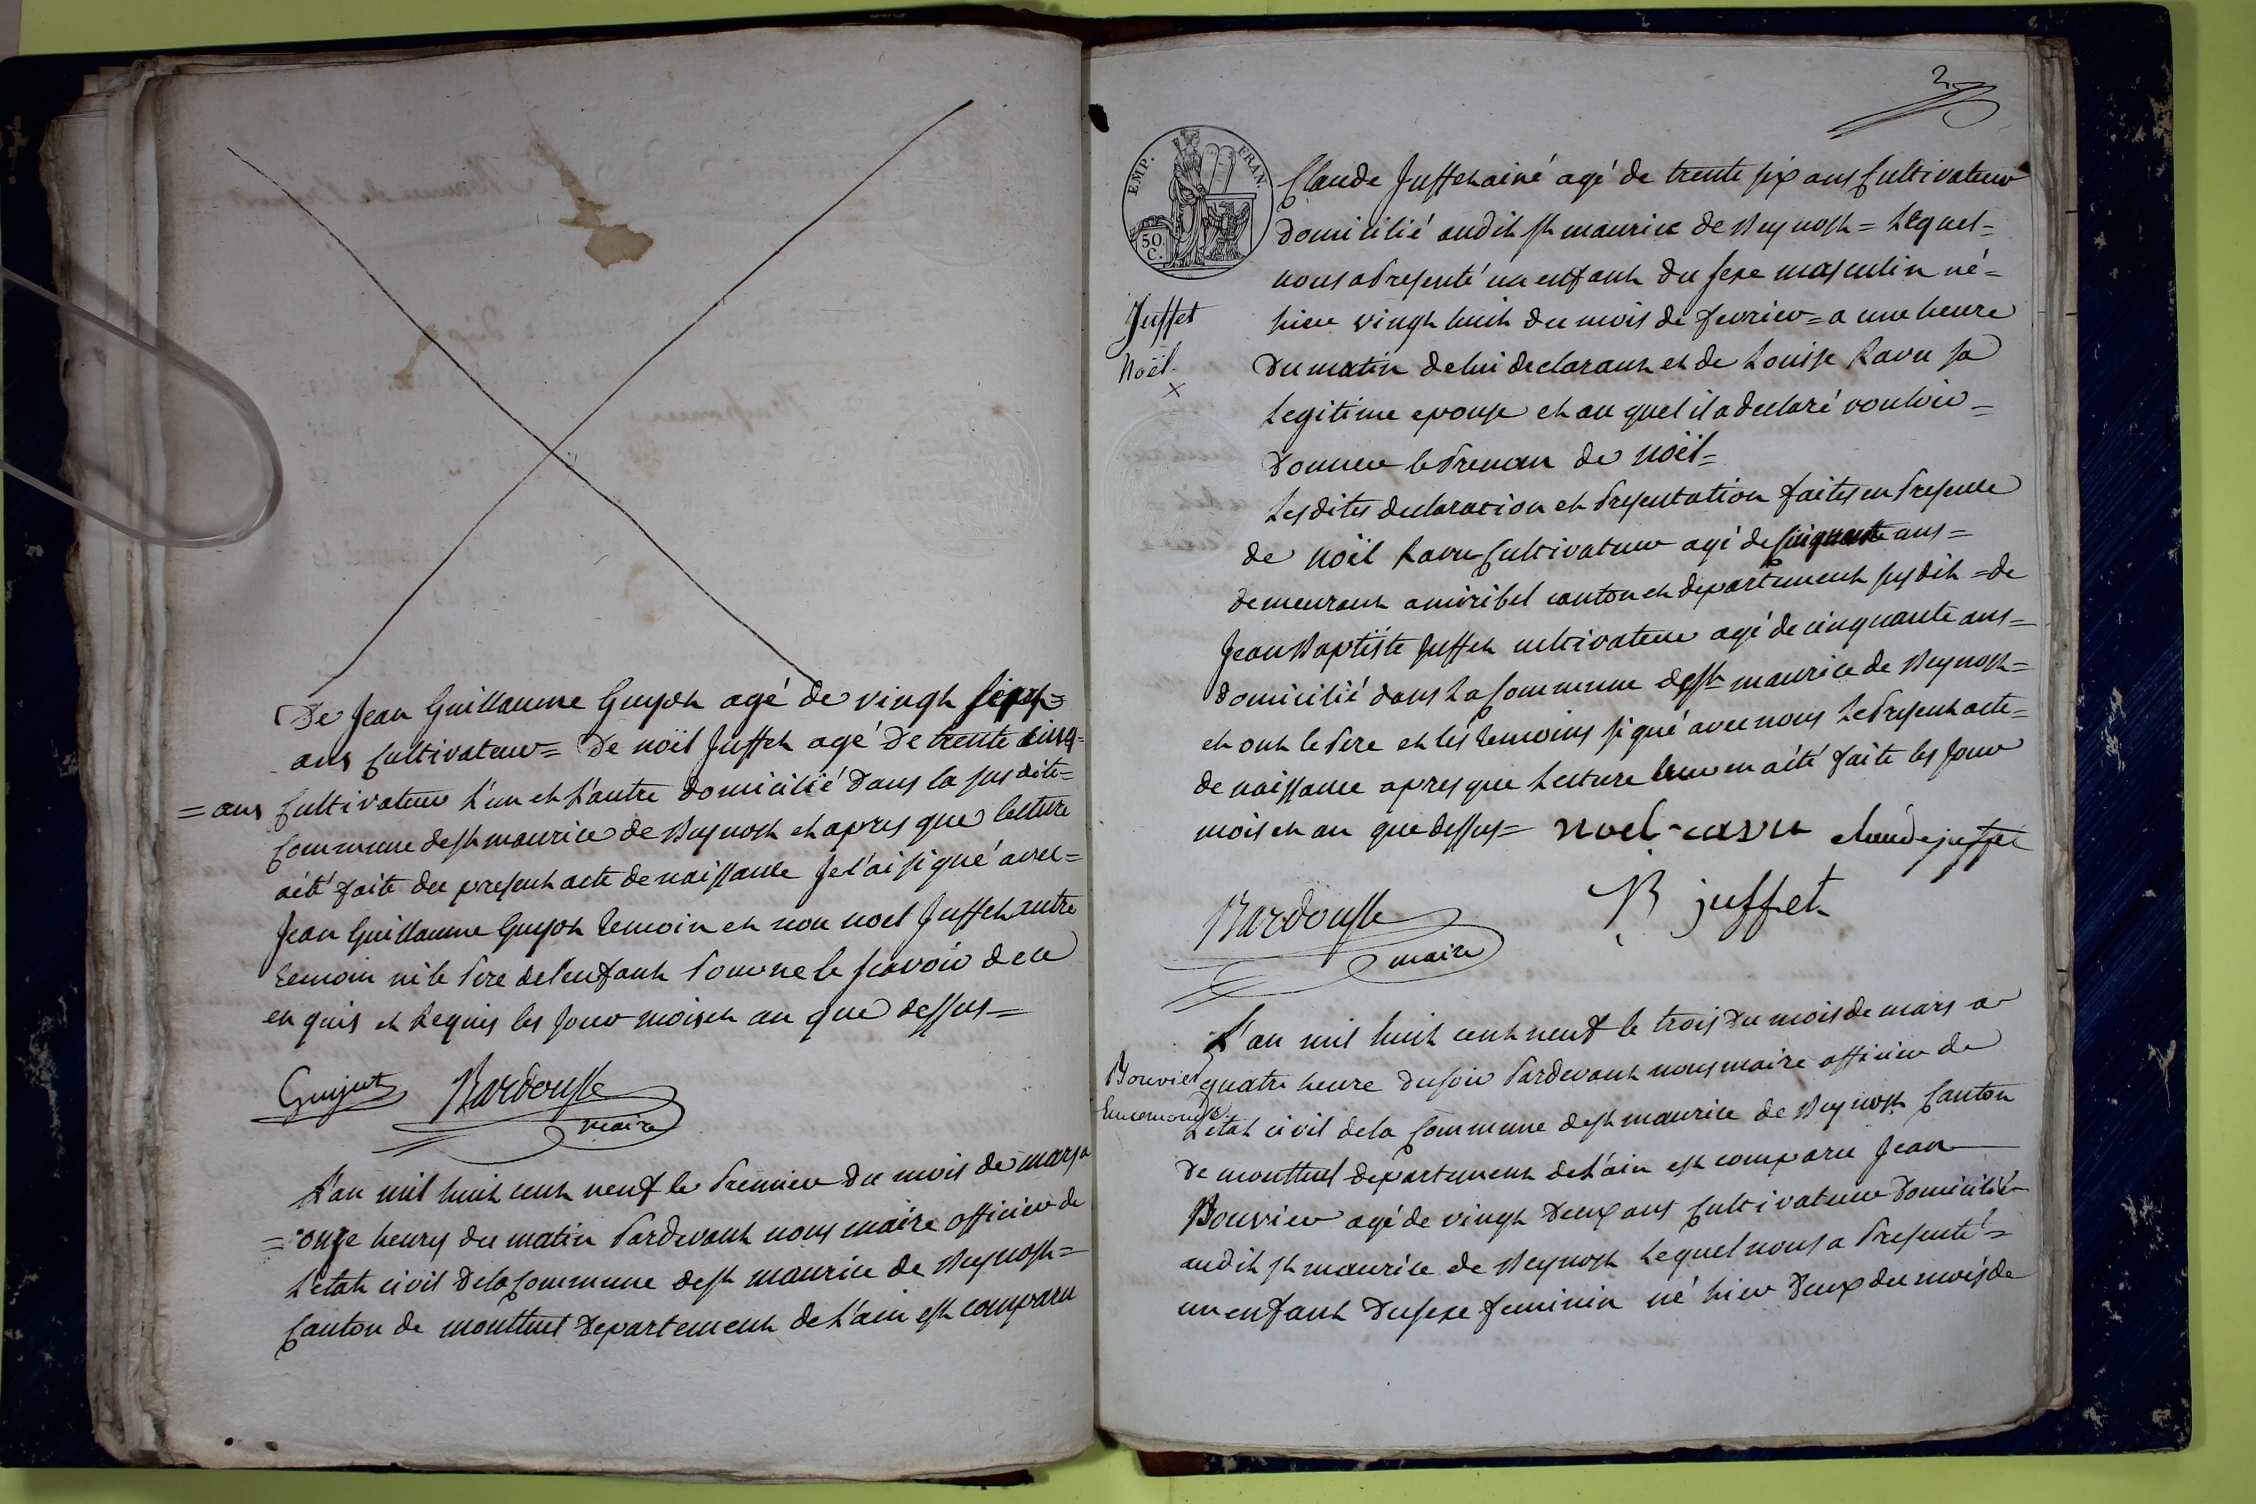 De Jean Guillaume Guyot agé de vingt sept=
ans Cultivateur= De noël Juffet agé De trente cinq=
=ans Cultivateur L'un et L'autre domicilié Dans la sus dite=
Commune de st maurice de Beynost et apres que lecture
aété faite du present acte de naissance Je l'ai signé avec=
Jean Guillaume Guyot temoin et non noel Juffet autre
temoin ni le Pere de l'enfant Pour ne le scavoir de ce
en quis et Requis les Jour mois et an que dessus=
Guyot Bardousse
maire
L'an mil huit cent neuf le Premier du mois de mars a
=onze heures du matin Pardevant nous maire officier de
L'etat civil De la Commune de st maurice de Beynost=
Canton de montluel Departement de L'ain est comparu
2
EMP. FRAN.
50.
C.
Juffet
Noël
Claude Juffet ainé agé de trente six ans Cultivateur
domicilié audit st maurice de Beynost= Lequel=
nous a Presenté un enfant du sexe masculin né=
hier vingt huit du mois de fevrier= a une heure
Du matin de lui declarant et de Louise Ravu sa
Legitime epouse et au quel il a declaré vouloir=
Donner le Prenom de Noël=
Les dites declaration et Presentation faites en Presence
de Noël Ravu Cultivateur agé de Cinquante ans=
demeurant a miribel canton et departement susdit =de
Jean Baptiste Juffet cultivateur agé de cinquante ans=
domicilié dans La Commune de st maurice de Beynost=
et ont le Pere et les temoins signé avec nous Le Present acte=
de naissance apres que Lecture leur en aété faite les Jour
mois et an que dessus= noel ravu claude juffet
Bardousse B juffet
maire
Bouvier
L'an mil huit cent neuf le trois Du mois de mars a
quatre heure du soir Pardevant nous maire officier de
L'etat civil de la Commune de st maurice de Beynost Canton
De montluel departement de L'ain est comparu Jean
Bouvier agé de vingt Deux ans Cultivateur Domicilié
audit st maurice de Beynost Lequel nous a Presenté=
un enfant Du sexe feminin né hier Deux du mois de